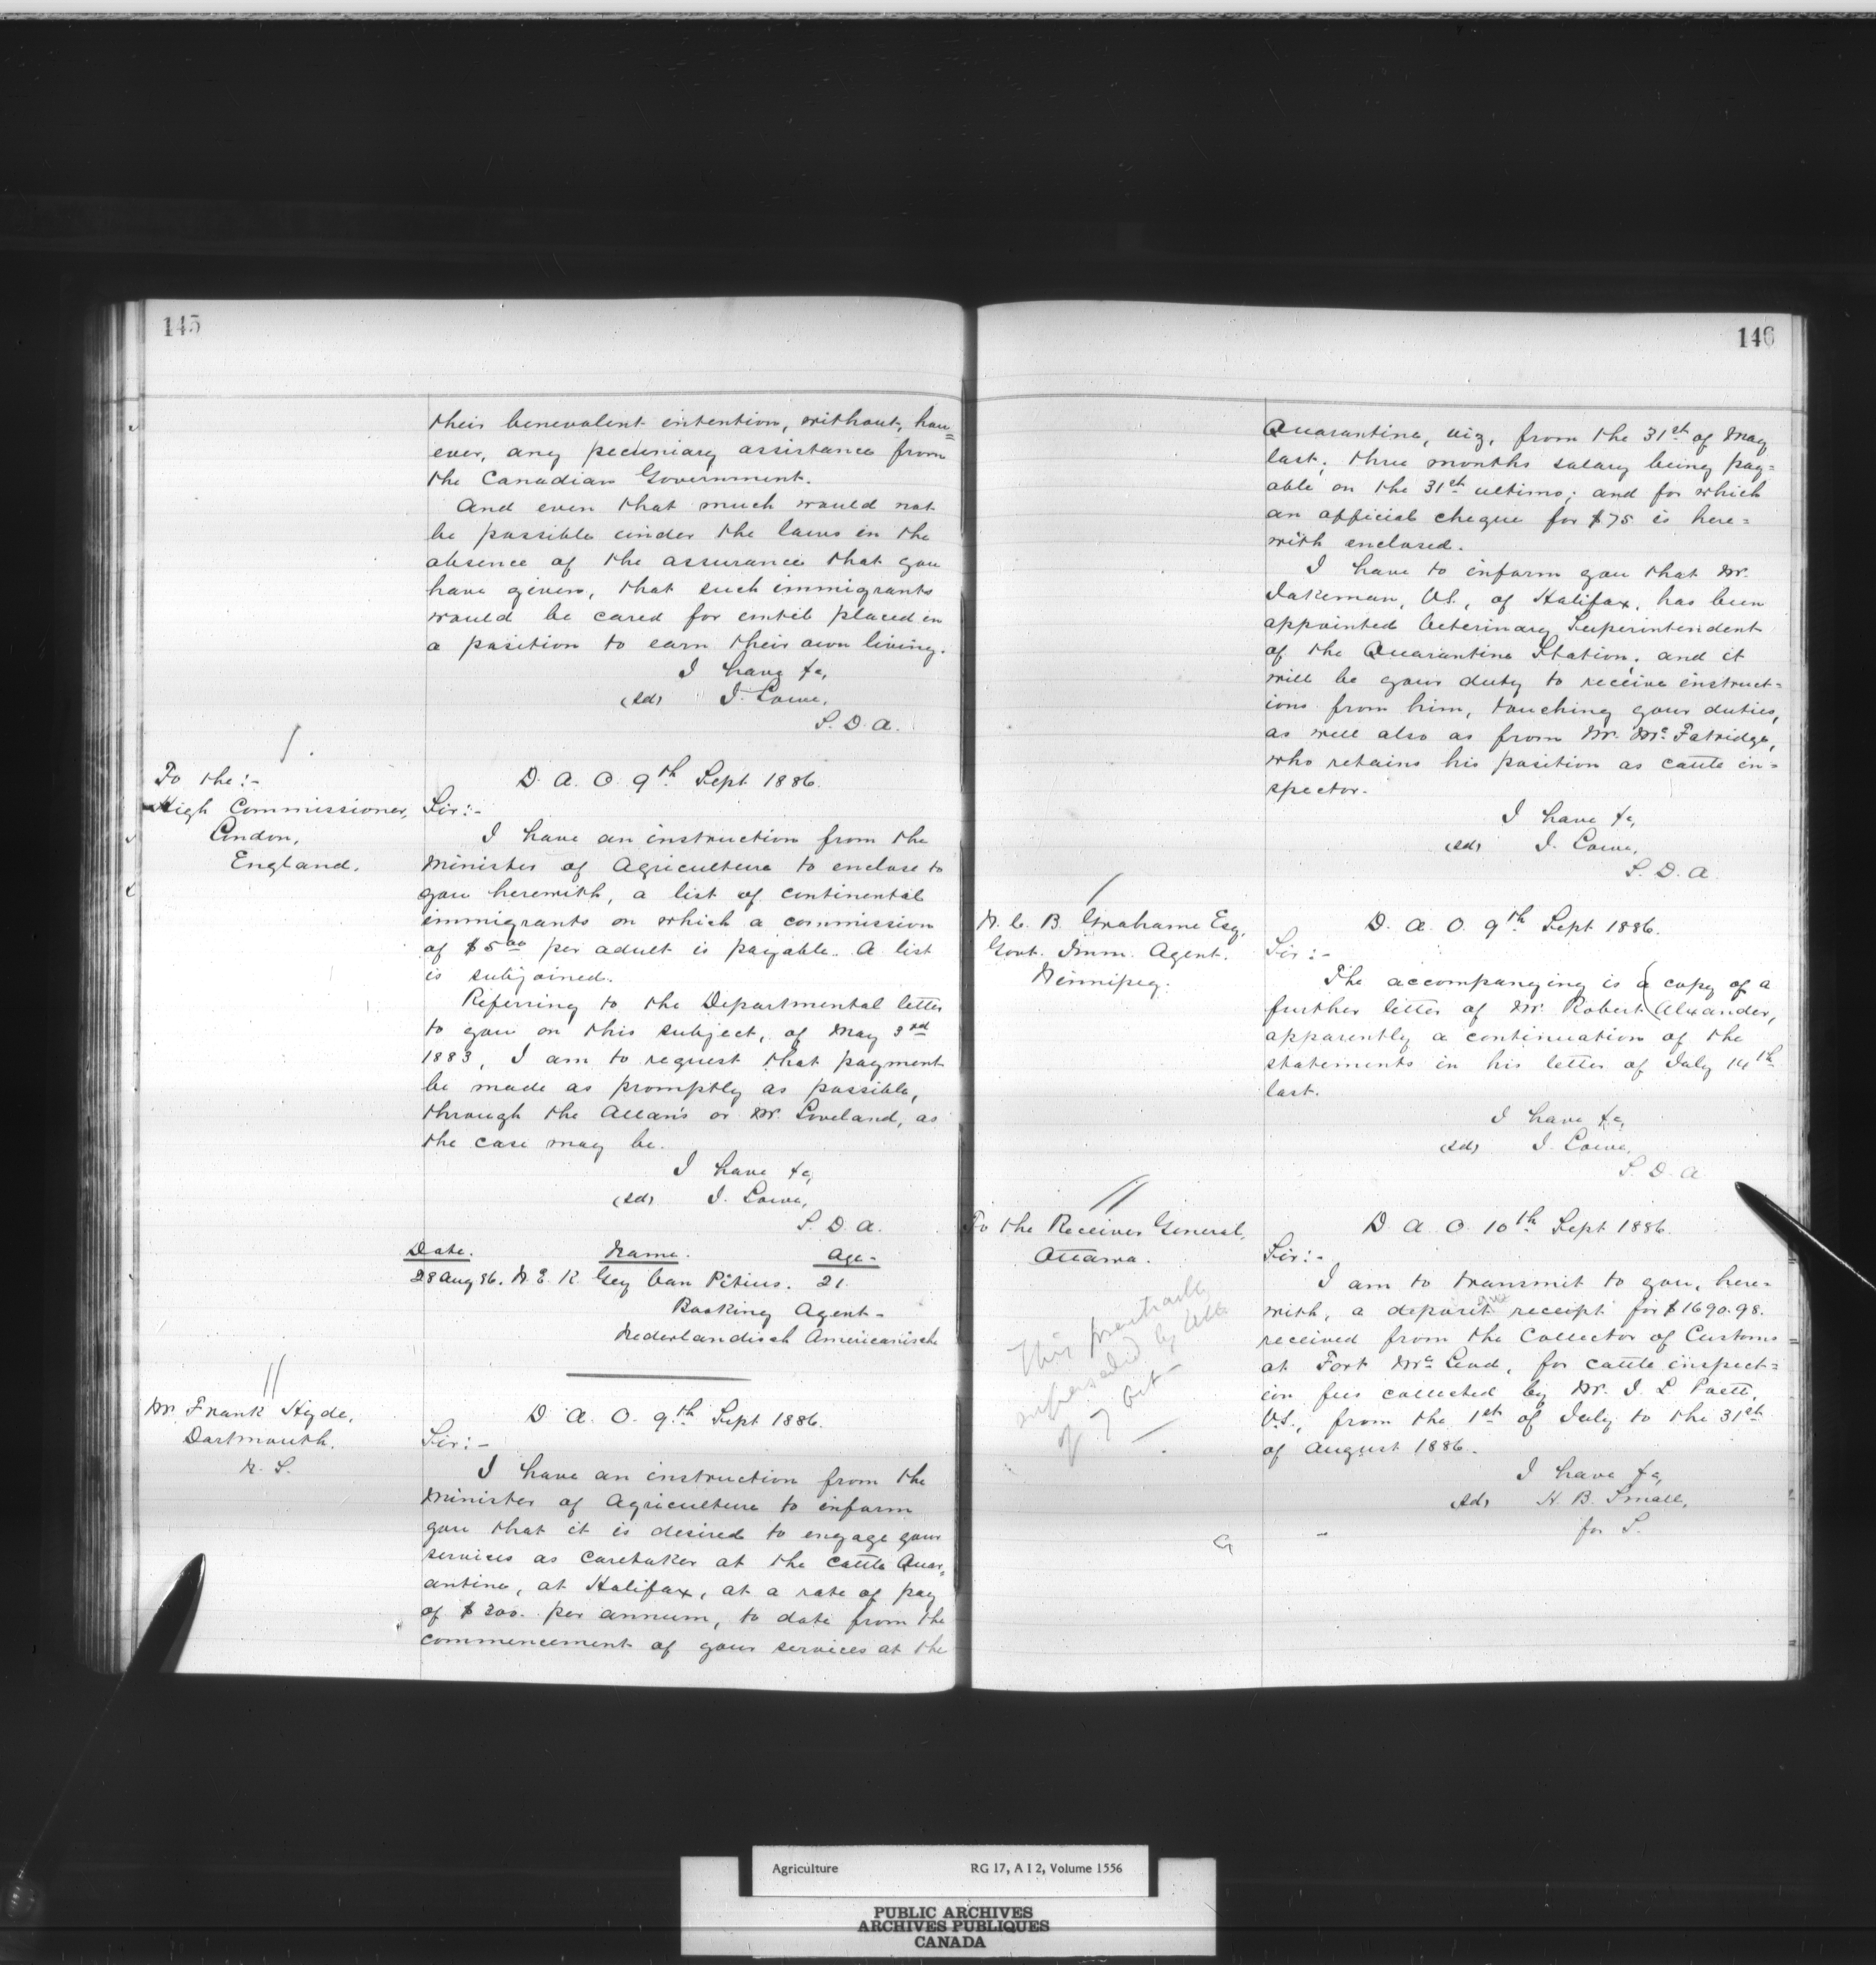 145
their benevolent intention, without, how=
ever, any pecuniary assistance from
the Canadian Government.
And even that much would not
be possible under the laws in the
absence of the assurance that you
have given, that such immigrants
would be cared for until placed in
a position to earn their own living.
I have &c,
(sd) J. Lowe,
S. D. A.
To the:-
High Commissioner,
London,
England.
D. A. O. 9th Sept 1886.
Sir:-
I have an instruction from the
Minister of Agriculture to enclose to
you herewith, a list of continental
immigrants on which a commission
of $5.00 per adult is payable. A list
is subjoined.
Referring to the Departmental letter
to you on this subject, of May 3rd
1883, I am to request that payment
be made as promptly as possible,
through the Allan's or Mr. Loveland, as
the case may be.
I have &c,
(sd) J. Lowe,
S. D. A.
Date. Name. Age-
28 Aug 86. N. E. K. Gey Van Pitius. 21.
Booking Agent-
Nederlandisch Americanische
Mr Frank Hyde,
Dartmouth.
N. S.
D. A. O. 9th Sept 1886.
Sir:-
I have an instruction from the
Minister of Agriculture to inform
you that it is desired to engage your
services as Caretaker at the Cattle Quar=
antine, at Halifax, at a rate of pay
of $300. per annum, to date from the
commencement of your services at the
146
Quarantine, viz, from the 31st of May
last; three months salary being pay=
able on the 31st ultimo; and for which
an official cheque for $75 is here=
with enclosed.
I have to inform you that Mr.
Jakeman, V.S., of Halifax, has been
appointed Veterinary Superintendent
of the Quarantine Station; and it
will be your duty to receive instruct=
ions from him, touching your duties,
as well also as from Mr. McFatridge,
who retains his position as cattle in=
spector.
I have &c,
(sd) J. Lowe,
S. D. A.
W. C. B. Grahame Esq,
Govt. Imm. Agent.
Winnipeg.
D. A. O. 9th Sept 1886.
Sir:-
The accompanying is a copy of a
further letter of Mr. Robert Alexander,
apparently a continuation of the
statements in his letter of July 14th
last.
I have &c,
(sd) J. Lowe,
S. D. A.
To the Receiver General,
Ottawa.
This practically
superseded by letter
of 7 Oct-
D. A. O. 10th Sept 1886.
Sir:-
I am to transmit to you, here=
with, a deposit receipt for $1690.98.
received from the Collector of Customs
at Fort McLeod, for cattle inspect=
ion fees collected by Mr. J. L Poett,
V.S., from the 1st of July to the 31st
of August 1886.
I have &c,
(sd) H. B. Small,
for S.
Agriculture RG 17, A I 2, Volume 1556
PUBLIC ARCHIVES
ARCHIVES PUBLIQUES
CANADA